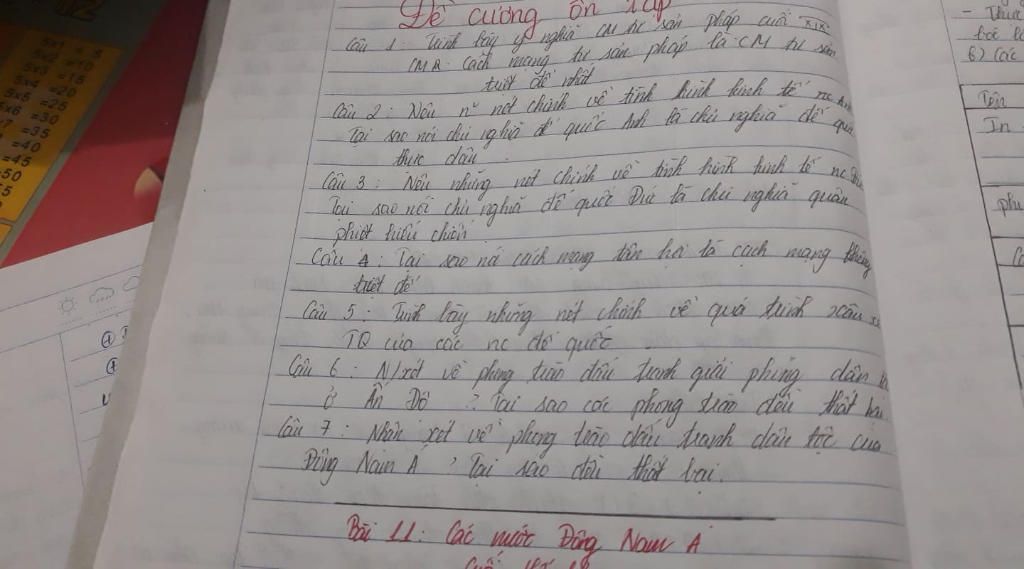 Đề cương ôn tập
Câu 1 : Trình bày ý nghĩa CM tư sản pháp cuối XIX
CMR Cách mạng tư sản pháp là CM tư sản
triệt để nhất
Câu 2 : Nêu n~ nét chính về tình hình kinh tế nc Anh
Tại sao nói chủ nghĩa đế quốc Anh là chủ nghĩa đế quốc
thực dân
Câu 3 : Nêu những nét chính về tình hình kinh tế nc
Tại sao nói chủ nghĩa đế quốc Đức là chủ nghĩa quân
phiệt hiếu chiến
Câu 4 : Tại sao nói cách mạng tân hợi là cách mạng không
triệt để
Câu 5 : Trình bày những nét chính về quá trình xâm
TQ của các nc đế quốc
Câu 6 : N/xét về phong trào đấu tranh giải phóng dân
ở Ấn Độ ? Tại sao các phong trào đều thất bại
Câu 7 : Nhận xét về phong trào đấu tranh dân tộc của
Đông Nam Á ? Tại sao đều thất bại.
Bài 11 : Các nước Đông Nam Á
5x1 = 5
5x2 = 10
5x3 = 15
5x4 = 20
5x5 = 25
5x6 = 30
= 35
= 40
= 45
50
6) Các
Tên
In